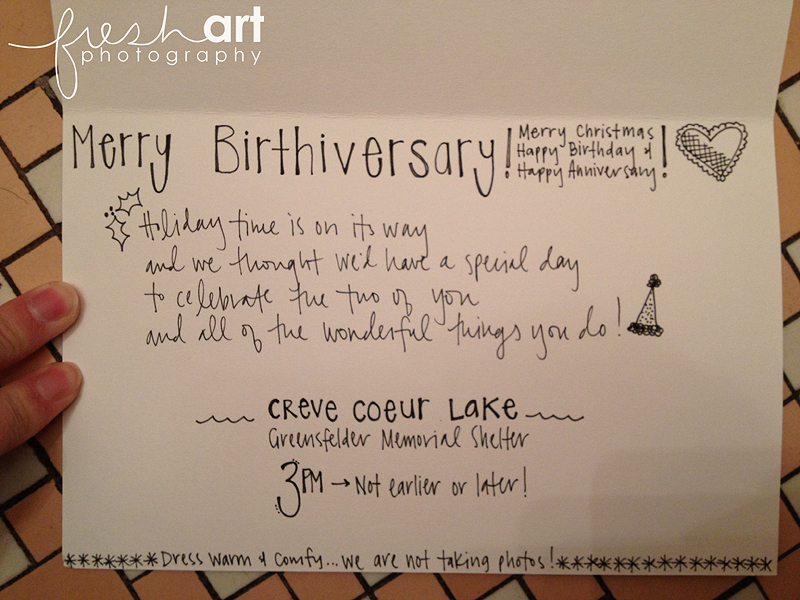 fresh art
photography
Merry Birthiversary!
Merry Christmas
Happy Birthday &
Happy Anniversary!
Holiday time is on its way
and we thought we'd have a special day
to celebrate the two of you
and all of the wonderful things you do!
Creve Coeur Lake
Greensfelder Memorial Shelter
3PM → Not earlier or later!
*******Dress warm & comfy... we are not taking photos!****************